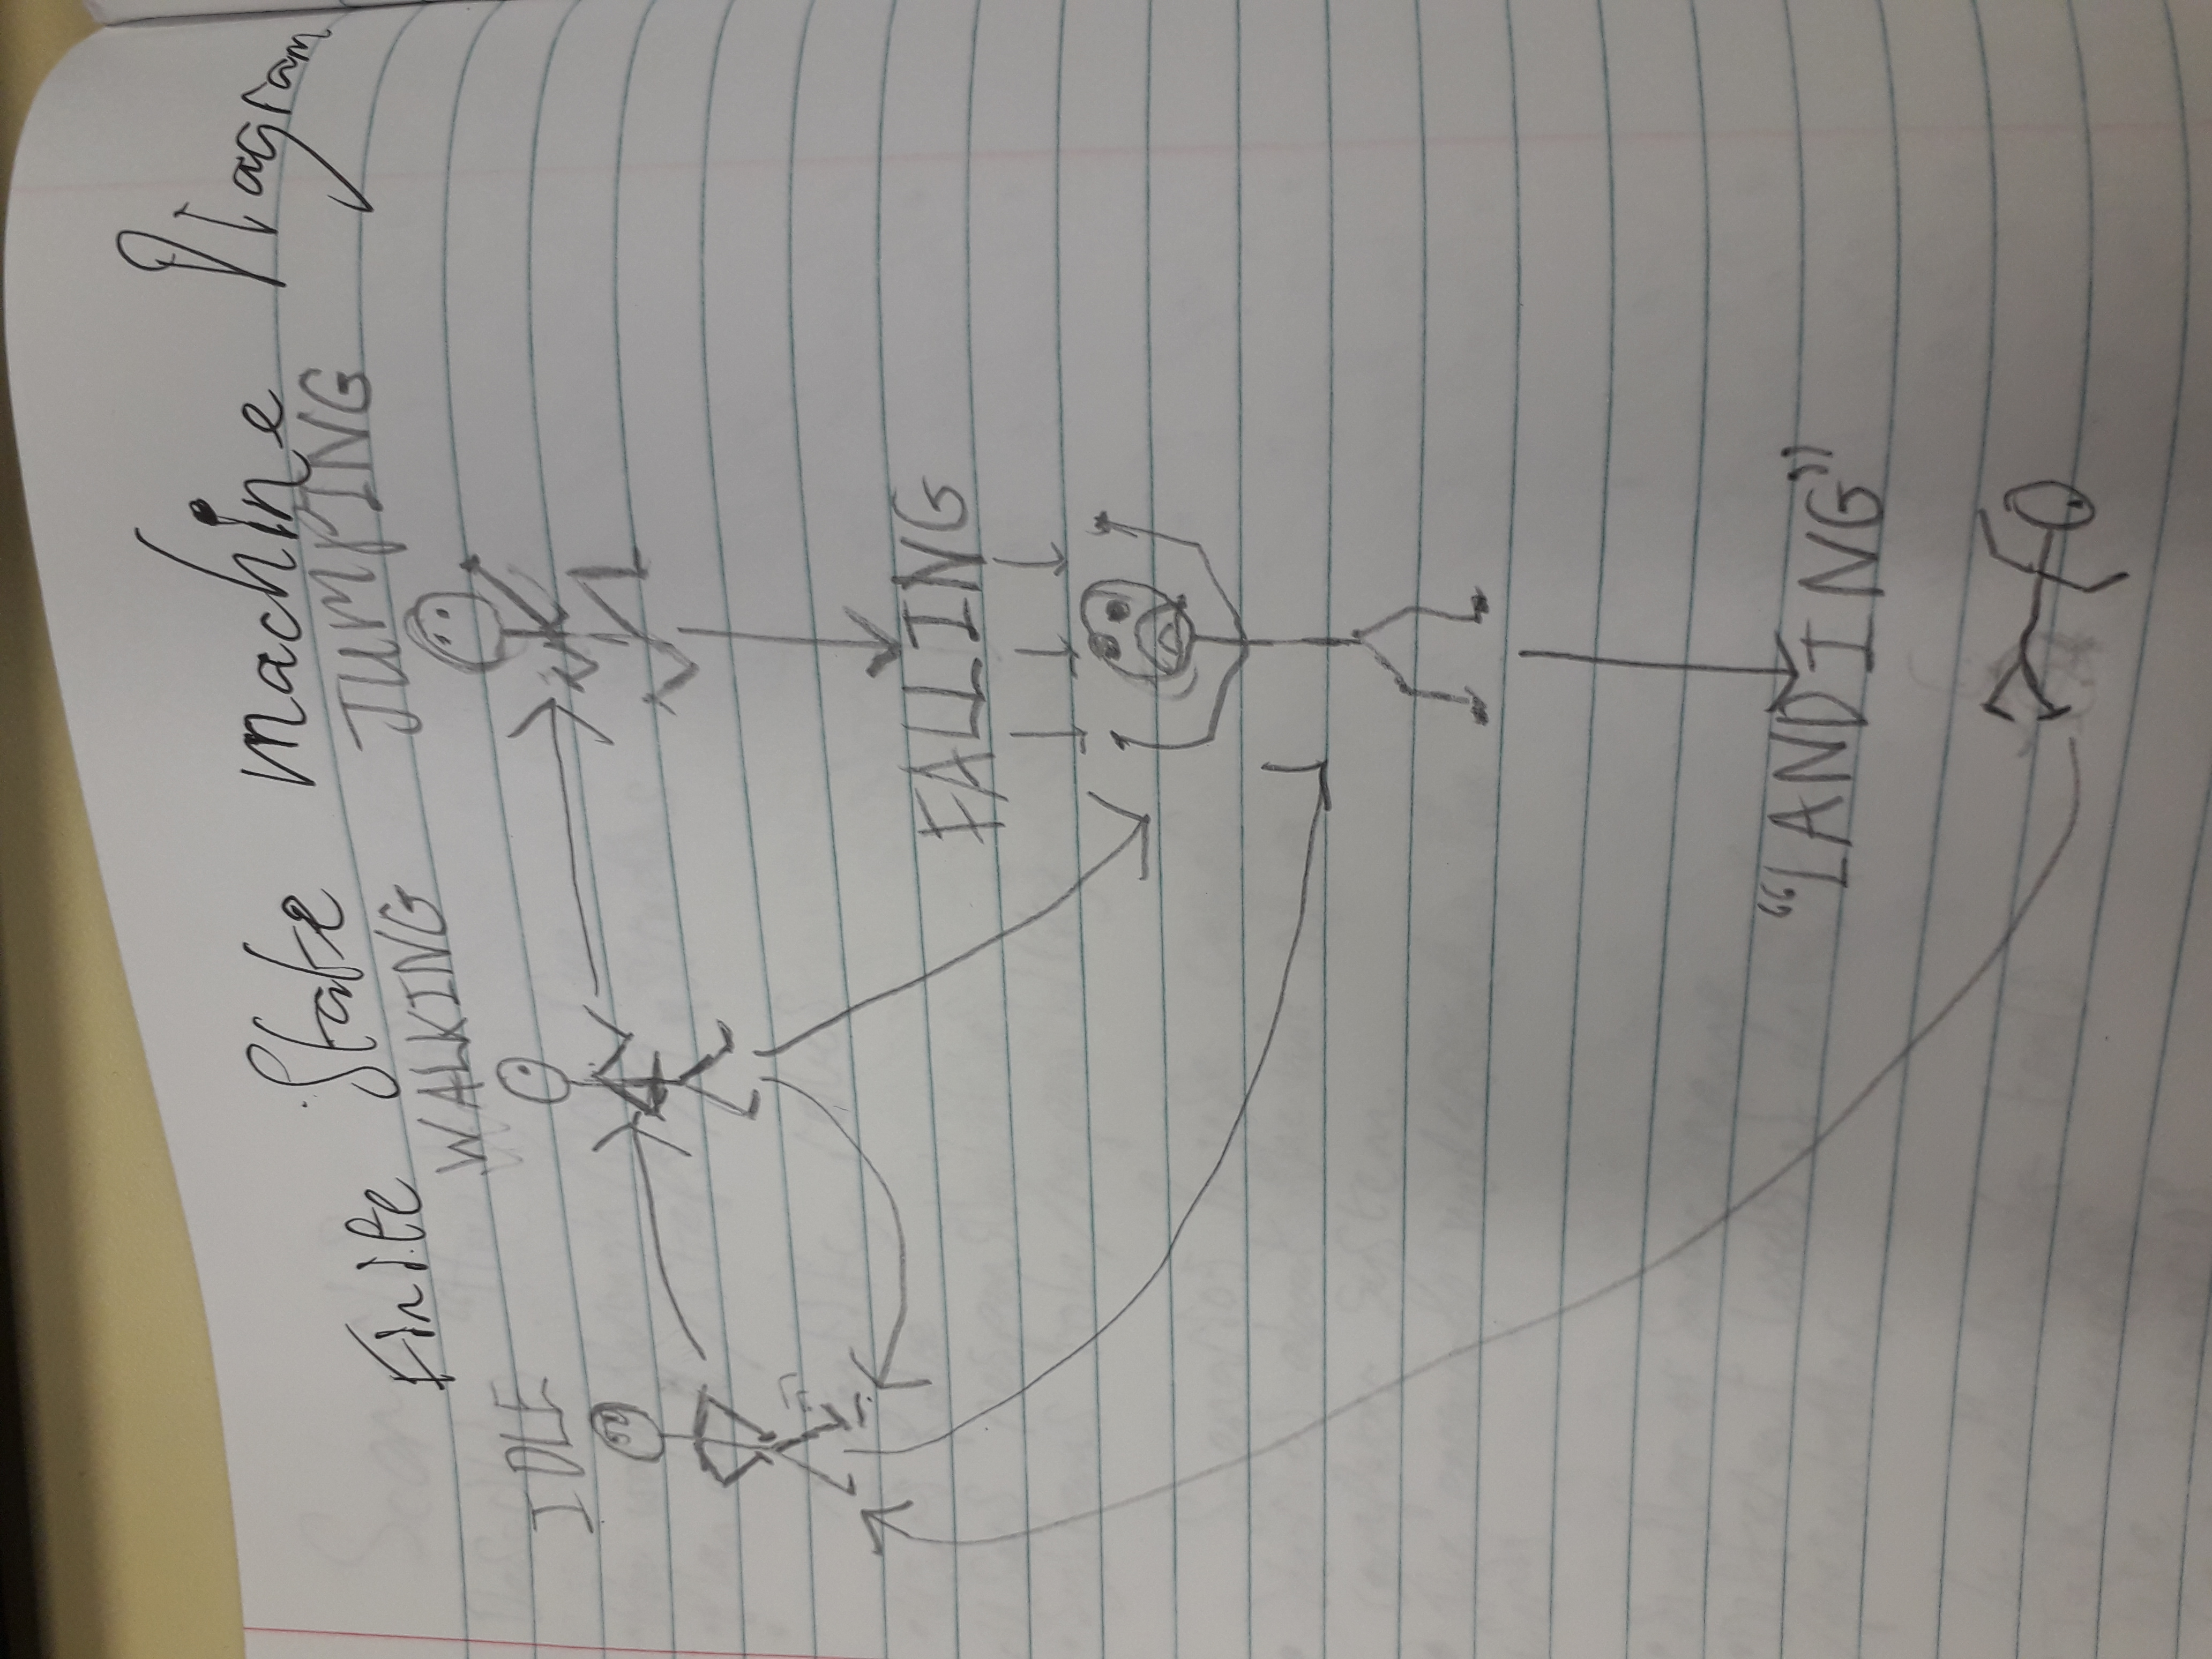 Finite State machine Diagram
IDLE
WALKING
JUMPING
FALLING
"LANDING"